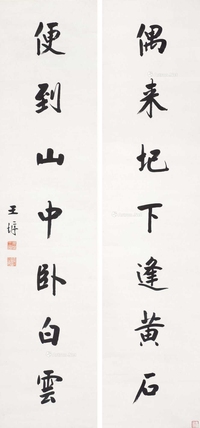 偶来圯下逢黄石
便到山中卧白雲
王壻